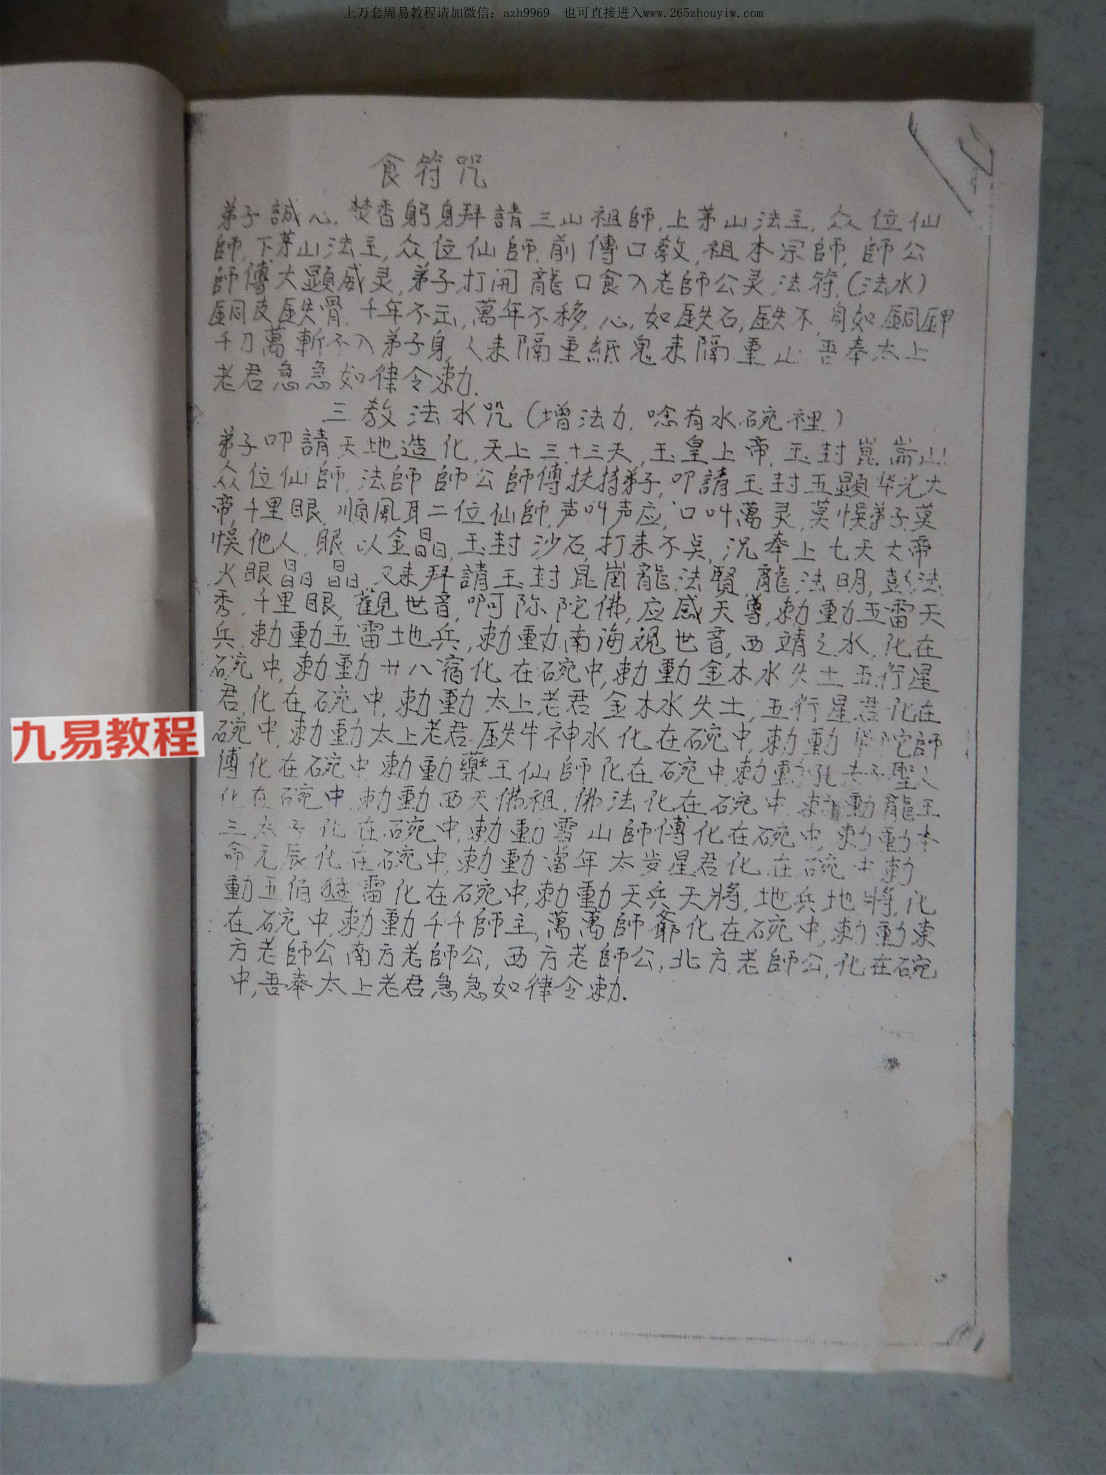 上万套周易教程请加微信：azh9969 也可直接进入www.265zhouyiw.com
食符咒
弟子誠心.焚香躬身拜請三山祖師,上茅山法主.众位仙
師,下茅山法主,众位仙師,前傳口教,祖本宗師,師公
師傳大顯威灵,弟子打開龍口食入老師公灵法符,(法水)
銅皮鉄骨.千年不,萬年不移,心,如鉄石,鉄不,身如銅甲
千刀萬斬不入弟子身,人未隔重紙鬼未隔重山.吾奉太上
老君急急如律令勅.
三教法水咒(增法力.唸有水碗裡)
弟子叩請天地造化,天上三十三天,玉皇上帝,玉封崑崙山
众位仙師,法師師公師傳扶持弟子,叩請玉封五顯华光大
帝,千里眼,順風耳二位仙師,声叫声应,口叫萬灵,莫悞弟子莫
悞他人,眼以金晶,玉封沙石,打未不,况奉上七天大帝
火眼晶晶,又未拜請玉封昆崗龍法賢龍法明,彭法
秀,千里眼,觀世音,啊弥陀佛,应感天尊,勅動五雷天
兵,勅動五雷地兵,勅動南海覌世音,西靖之水,化在
碗中,勅動廿八宿化在碗中,勅動金木水失土五行星
君,化在碗中,勅動太上老君金木水失土,五行星君化在
碗中,勅動太上老君鉄牛神水化在碗中,勅動华陀師
九易教程
傳化在碗中,勅動藥王仙師化在碗中,勅動孔夫子聖人
化在碗中,勅動西天佛祖,佛法化在碗中,勅動龍王
三太子化在碗中,勅動雪山師傳化在碗中,勅動本
命元辰化在碗中,勅動當年太岁星君化在碗中勅
動五佰雷化在碗中,勅動天兵天將,地兵地將,化
在碗中,勅動千千師主,萬萬師爺化在碗中,勅動東
方老師公南方老師公,西方老師公,北方老師公,化在碗
中,吾奉太上老君急急如律令勅.